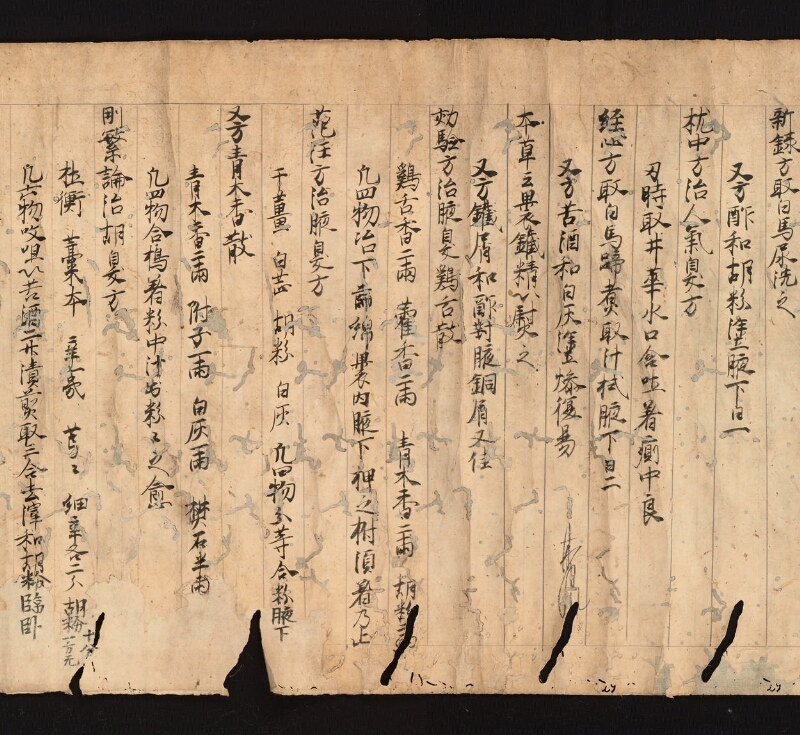 新録方取白馬尿洗之
又方酢和胡粉塗腋下日一
枕中方治人氣臭方
旦時取井華水口含吐着廁中良
経心方取白馬蹄煮取汁拭腋下日二
又方苦酒和白灰塗燥復易
本草云裹鐵精以熨之
又方鐵屑和酢封腋銅屑又佳
効驗方治腋臭鷄舌散
鷄舌香二兩 藿香二兩 青木香二兩 胡粉二兩
凡四物冶下篩綿裹内腋下
范汪方治腋臭方
干薑 白芷 胡粉 白灰 凡四物分等合粉腋下
又方青木香散
青木香二兩 附子一兩 白灰一兩 樊石半兩
凡四物合搗着粉中汁出粉々之愈
刪繁論治胡臭方
杜衡 藁本 辛夷 芎々 細辛各二分 胡粉十分
凡六物㕮咀以苦酒二升漬煎取三合去滓和胡粉臨卧